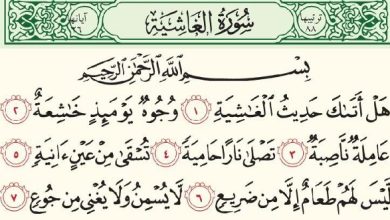 ترتيبها ٨٨ سُورَةُ الْغَاشِيَةِ آياتها ٢٦
بِسْمِ اللَّهِ الرَّحْمَٰنِ الرَّحِيمِ
هَلْ أَتَىٰكَ حَدِيثُ ٱلْغَٰشِيَةِ ١ وُجُوهٌ يَوْمَئِذٍ خَٰشِعَةٌ ٢
عَامِلَةٌ نَّاصِبَةٌ ٣ تَصْلَىٰ نَارًا حَامِيَةً ٤ تُسْقَىٰ مِنْ عَيْنٍ ءَانِيَةٍ ٥
لَّيْسَ لَهُمْ طَعَامٌ إِلَّا مِن ضَرِيعٍ ٦ لَّا يُسْمِنُ وَلَا يُغْنِى مِن جُوعٍ ٧